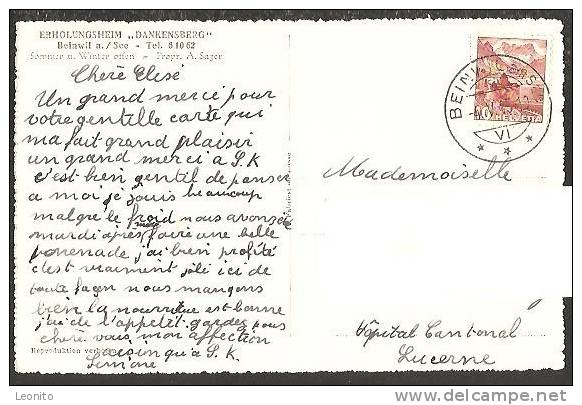 ERHOLUNGSHEIM „DANKENSBERG"
Beinwil a./See - Tel. 6 10 62
Sommer u. Winter offen - Propr. A. Sager
Cherè Elise
Un grand merci pour
votre gentille carte qui
ma fait grand plaisir
un grand merci a S. K
c'est bien gentil de panser
a moi je jouis beaucoup
malgré le froid nous avons
mardi après midi faire une belle
pomenade j'ai bien profité
c'est vraiment joli ici de
toute façon nous mangons
bien la nourritue est bonne
j'ai de l'appetit gardez pous
cherè vous mon affection
Reproduktion
ainsin qu'a S. K
Simone
BEINW
VI
HELVETIA
Mademoiselle
Hôpital Cantonal
Lucerne
Leonito
delcampe.net